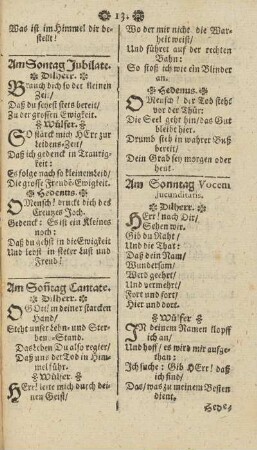 13.
Was ist im Himmel dir be-
stellt!
Am Sontag Jubilate.
Dilherr.
Brauch dich so der kleinen
Zeit/
Daß du seyest stets bereit/
Zu der grossen Ewigkeit.
Wülfer.
Stärck mich HErr zur
leidens-Zeit/
Daß ich gedenck in Traurig-
keit:
Es folge nach so kleinem leid/
Die grosse Freud-Ewigkeit.
Hedenus.
O Mensch! druckt dich des
Creutzes Joch.
Gedenck: Es ist ein Kleines
noch:
Daß du gehst in die Ewigkeit
Und lebst in steter Lust und
Freud!
Am Sontag Cantate.
Dilherr.
O GOtt/ in deiner starcken
Hand/
Steht unser Leben- und Ster-
ben-Stand.
Das Leben Du also regier/
Daß uns der Tod in Him-
mel führ.
Wülfer.
HErr! leite mich durch dei-
nen Geist/
Wo der mir nicht die War-
heit weist/
Und führet auf der rechten
Bahn:
So stoß ich wie ein Blinder
an.
Hedenus.
O Mensch! der Tod steht
vor der Thür:
Die Seel geht hin/ das Gut
bleibt hier.
Drumb steh in wahrer Buß
bereit/
Dein Grab sey morgen oder
heut.
Am Sonntag Vocem
Jucunditatis.
Dilherr.
HErr! nach Dir/
Sehen wir.
Gib du Raht/
Und die That:
Daß dein Nam/
Wundersam/
Werd geehrt/
Und vermehrt/
Fort und fort/
Hier und dort.
Wülfer
In deinem Namen klopff
ich an/
Und hoff/ es wird mir aufge-
than:
Ich suche: Gib HErr! daß
ich find/
Das/ was zu meinem Besten
dient.